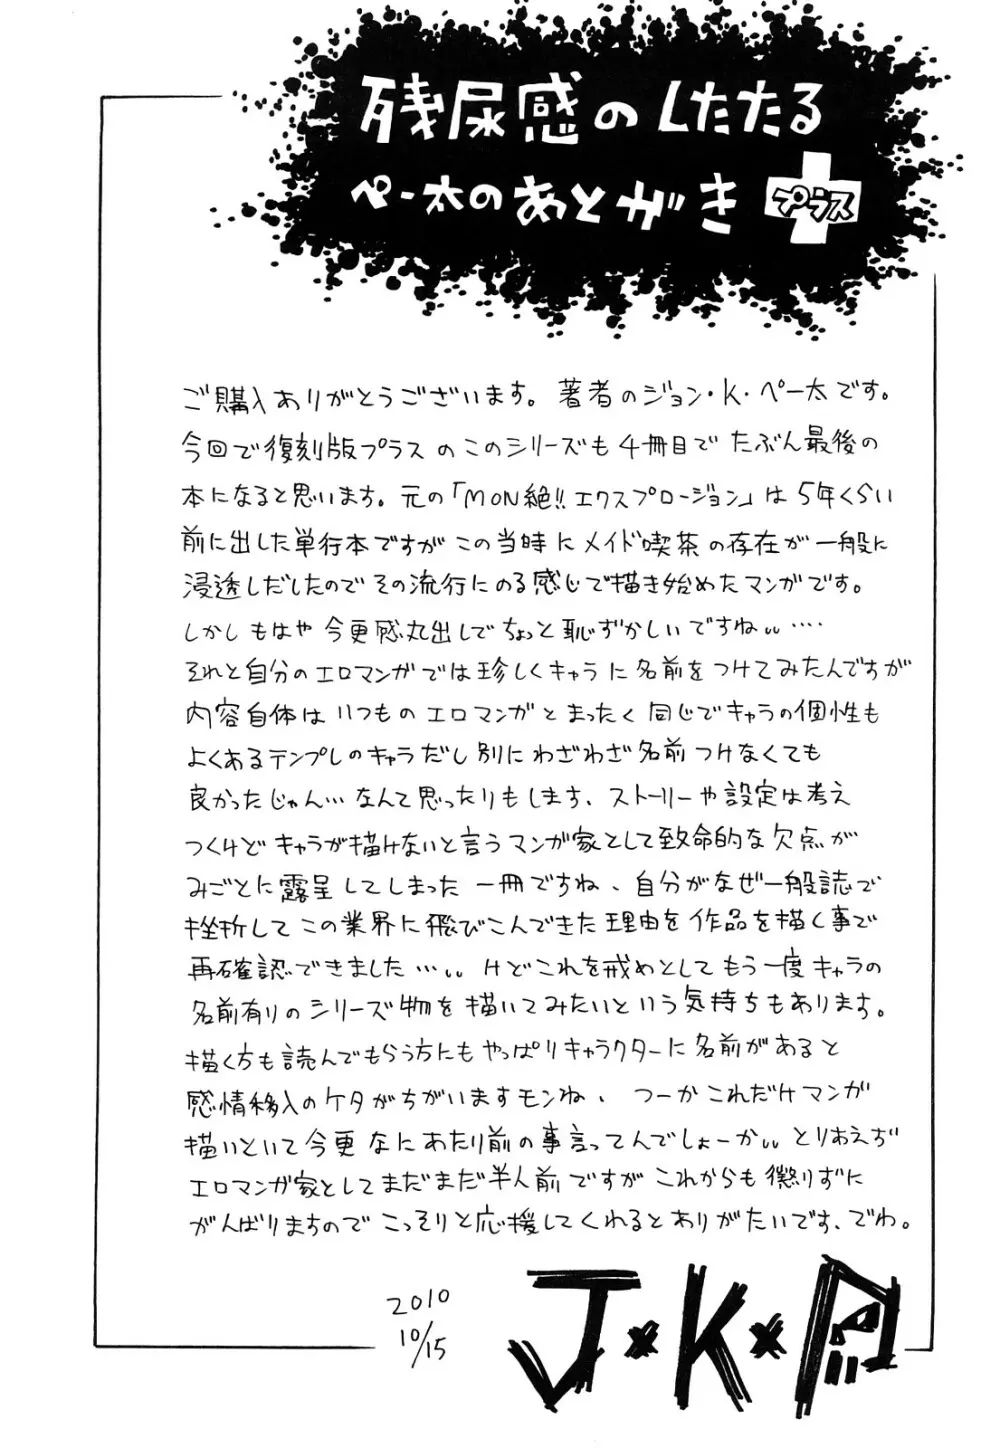 残尿感のしたたる
ペー太のあとがき プラス
ご購入ありがとうございます。著者のジョン・K・ペー太です。
今回で復刻版プラスのこのシリーズも4冊目でたぶん最後の
本になると思います。元の「MON絶!!エクスプロージョン」は5年くらい
前に出した単行本ですがこの当時にメイド喫茶の存在が一般に
浸透しだしたのでその流行にのる感じで描き始めたマンガです。
しかしもはや今更感丸出しでちょっと恥ずかしいですね〟‥‥
それと自分のエロマンガでは珍しくキャラに名前をつけてみたんですが
内容自体はいつものエロマンガとまったく同じでキャラの個性も
よくあるテンプレのキャラだし別にわざわざ名前つけなくても
良かったじゃん…なんて思ったりもします、ストーリーや設定は考え
つくけどキャラが描けないと言うマンガ家として致命的な欠点が
みごとに露呈してしまった一冊ですね、自分がなぜ一般誌で
挫折してこの業界に飛びこんできた理由を作品を描く事で
再確認できました…〟けどこれを戒めとしてもう一度キャラの
名前有りのシリーズ物を描いてみたいという気持ちもあります。
描く方も読んでもらう方にもやっぱりキャラクターに名前があると
感情移入のケタがちがいますモンね、つーかこれだけマンガ
描いといて今更なにあたり前の事言ってんでしょーか〟とりあえず
エロマンガ家としてまだまだ半人前ですがこれからも懲りずに
がんばりまちのでこっそりと応援してくれるとありがたいです、でわ。
2010
10/15
J×K×P